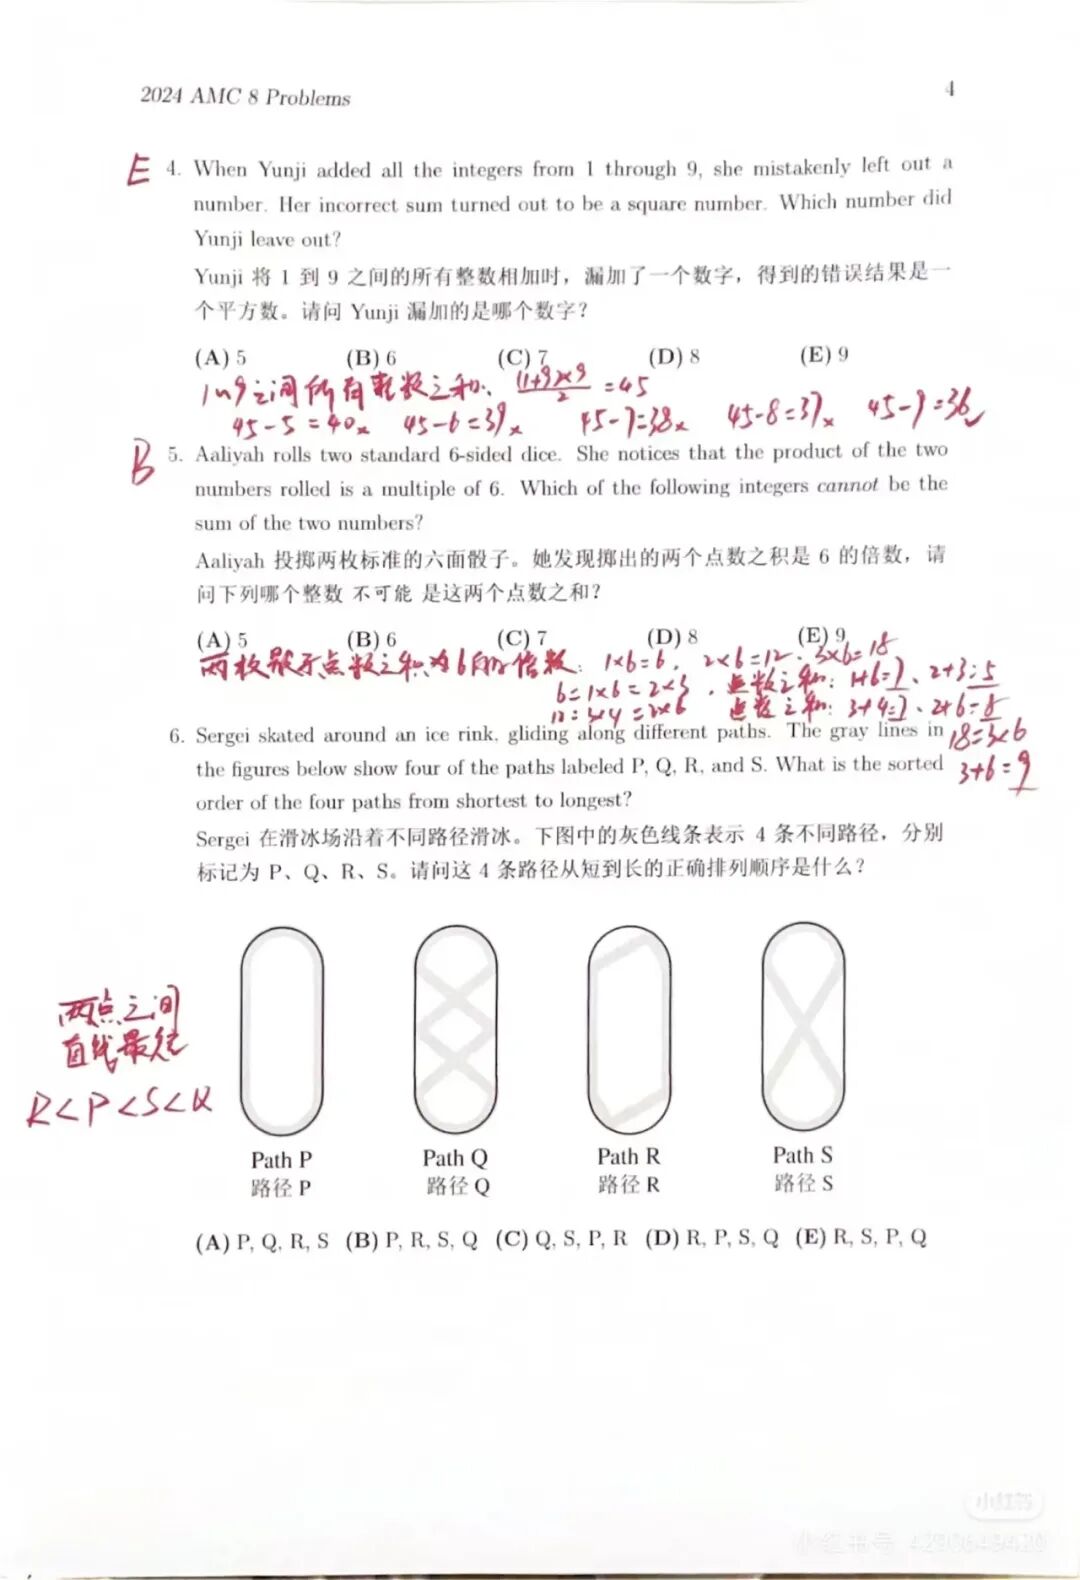 2024 AMC 8 Problems
4
E 4. When Yunji added all the integers from 1 through 9, she mistakenly left out a
number. Her incorrect sum turned out to be a square number. Which number did
Yunji leave out?
Yunji 将 1 到 9 之间的所有整数相加时，漏加了一个数字，得到的错误结果是一
个平方数。请问 Yunji 漏加的是哪个数字？
(A) 5 (B) 6 (C) 7 (D) 8 (E) 9
1~9之间所有整数之和: (1+9)×9/2 =45
45-5=40× 45-6=39× 45-7=38× 45-8=37× 45-9=36✓
B 5. Aaliyah rolls two standard 6-sided dice. She notices that the product of the two
numbers rolled is a multiple of 6. Which of the following integers cannot be the
sum of the two numbers?
Aaliyah 投掷两枚标准的六面骰子。她发现掷出的两个点数之积是 6 的倍数，请
问下列哪个整数 不可能 是这两个点数之和？
(A) 5 (B) 6 (C) 7 (D) 8 (E) 9
两枚骰子点数之积为6的倍数: 1×6=6, 2×6=12, 3×6=18
6=1×6=2×3, 点数之和: 1+6=7、2+3=5
12=3×4=2×6 点数之和: 3+4=7、2+6=8
18=3×6
3+6=9
6. Sergei skated around an ice rink, gliding along different paths. The gray lines in
the figures below show four of the paths labeled P, Q, R, and S. What is the sorted
order of the four paths from shortest to longest?
Sergei 在滑冰场沿着不同路径滑冰。下图中的灰色线条表示 4 条不同路径，分别
标记为 P、Q、R、S。请问这 4 条路径从短到长的正确排列顺序是什么？
两点之间
直线最短
R<P<S<Q
Path P Path Q Path R Path S
路径 P 路径 Q 路径 R 路径 S
(A) P, Q, R, S (B) P, R, S, Q (C) Q, S, P, R (D) R, P, S, Q (E) R, S, P, Q
小红书